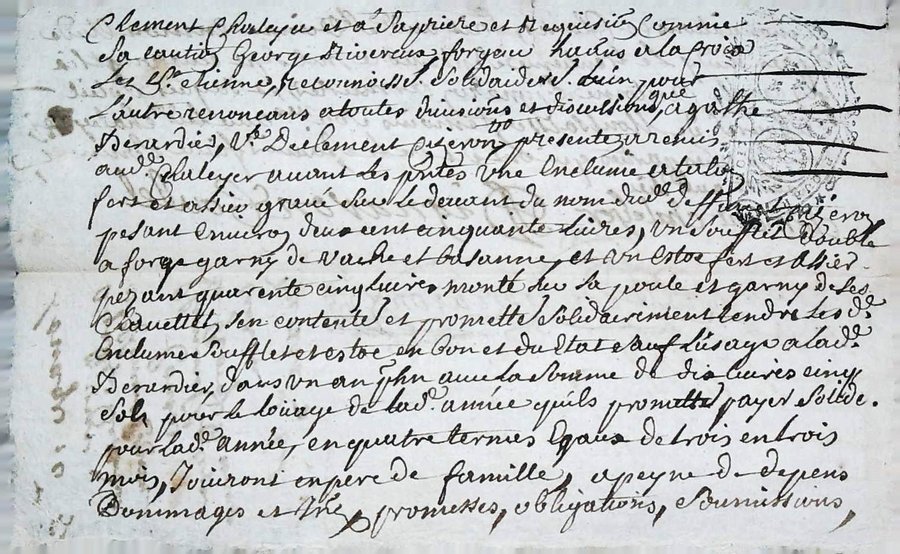 Clement Chaleyer et a sa priere et Requisiõn Comme
sa cautiõn George Rivereux forgeur hañns a la Croix
les St etienne, reconnoissẽ solidairemt l'un pour
l'autre renonceans a toutes divisions et discutions, que agathe
Berardier, Ve De Clement Citeron presente a remis
aud. Chaleyer avant les pntes une Enclume
fert et assier gravé sur le devant du nom dud. deffunt Citeron
pesant Enviroñ deux cent cinquante livres, un soufflet double
a forge garny de Vache et bazanne, et un Estoc fert et assier
pezant quarente cinq livres monté sur sa poule et garny de ses
Clavettes, s'en contente et promette solidairement rendre les d.
Enclume soufflet et estoc en bon et du Etat sauf l'usage a lad.
Berardier, dans un an pchñ avec la somme de dix livres cinq
sols pour le loüage de lad. année qu'ils promette payer solide.
pour lad. année, en quatre termes Egaux de trois en trois
mois, Joüiront en pere de famille, a peyne de depens
Dommages et Jntẽ, promesses, obligations, soumissions,